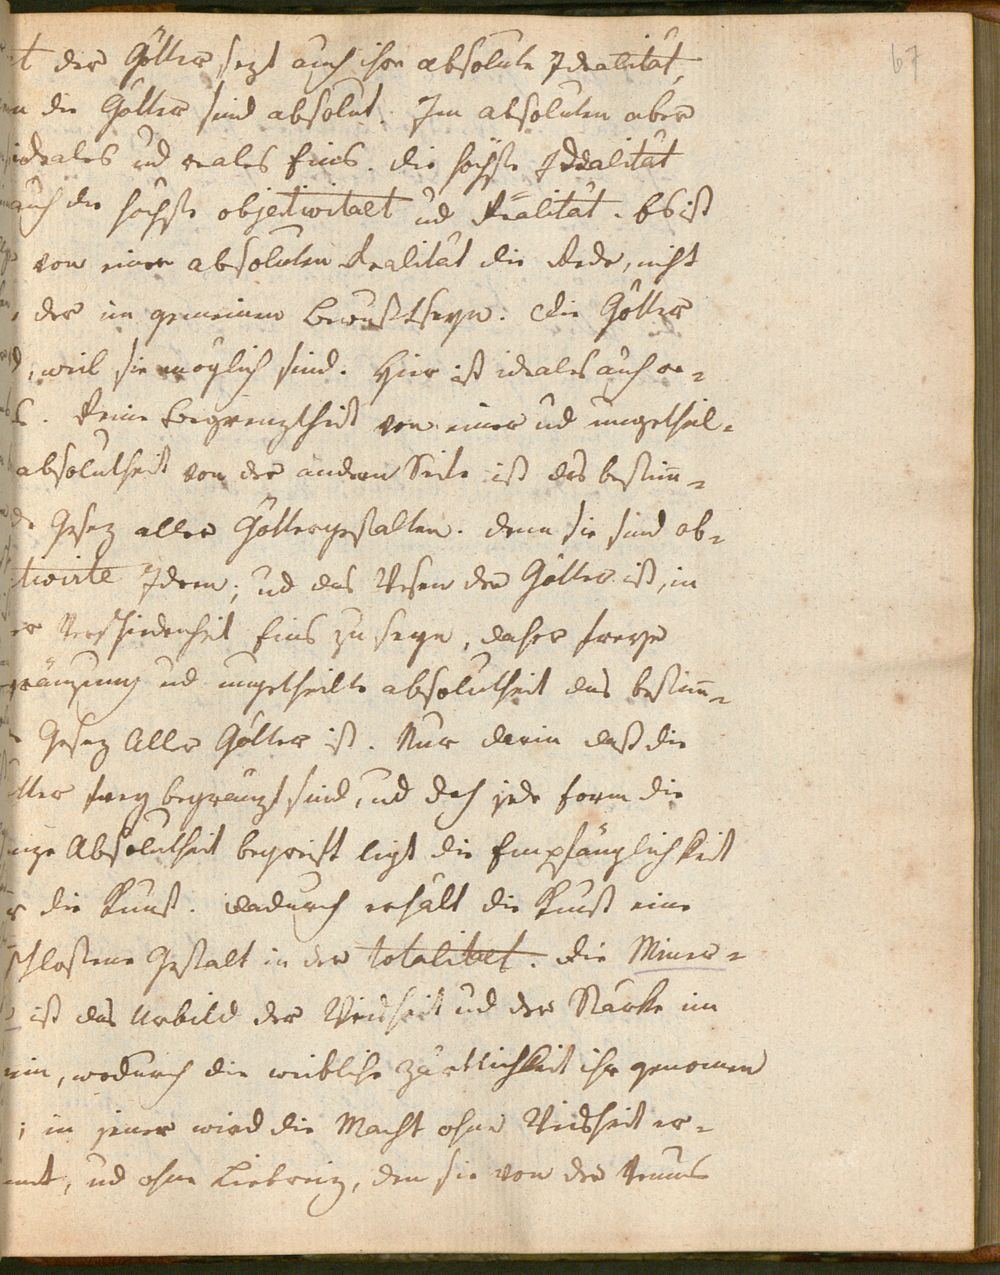 67
der Götter sezt auch ihre absolute Idealität,
die Götter sind absolut. Im absoluten aber
ideales ud reales Eins. die höchste Idealität
auch die höchste objectivitaet ud Realität. Es ist
von einer absoluten Realität die Rede, nicht
der im gemeinen Bewußtseyn. Die Götter
, weil sie möglich sind. Hier ist ideales auch re-
. Reine Begrenztheit von einer ud ungetheil-
absolutheit von der andern Seite ist das bestim-
de Gesez aller Göttergestalten. denn sie sind ob-
tivirte Ideen; ud das Wesen der Götter ist, in
er Verschiedenheit Eins zu seyn, daher freye
gränzung ud ungetheilte absolutheit das bestim-
Gesez Aller Götter ist. Nur darin daß die
tter frey begränzt sind, ud doch jede Form die
nze Absolutheit begreift ligt die Empfänglichkeit
r die Kunst. Dadurch erhält die Kunst eine
schloßene Gestalt in der totalitaet. die Miner-
ist das Urbild der Weisheit ud der Stärke im
ein, wodurch die weibliche Zärtlichkeit ihr genomen
; in jener wird die Macht ohne Weisheit er-
nt, ud ohne Liebreiz, den sie von der Venus